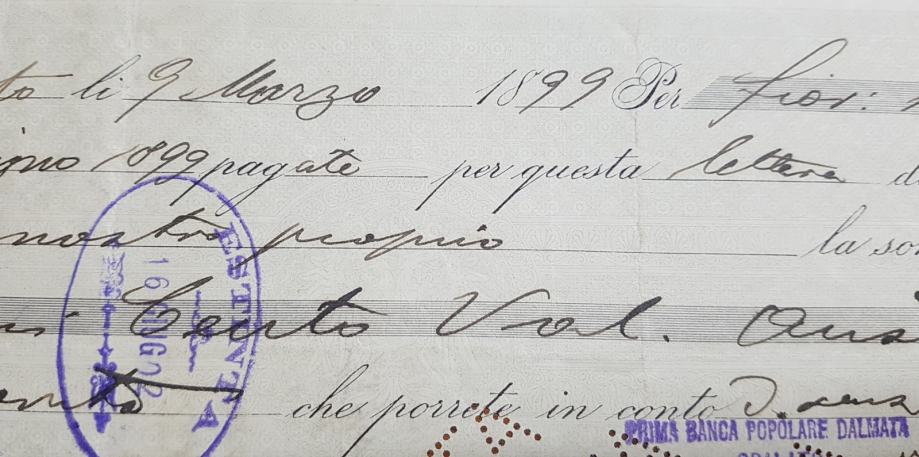 to li 9 Marzo 1899 Per fior:
1899 pagate per questa lettera d
nostro proprio la so
Cento Val. Aus
che porrete in conto
ESTINTA
16 GIUG
PRIMA BANCA POPOLARE DALMATA